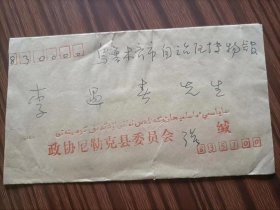 830000
乌鲁木齐市自治区博物馆
李遇春 先生
政协尼勒克县委员会 张 缄
835700